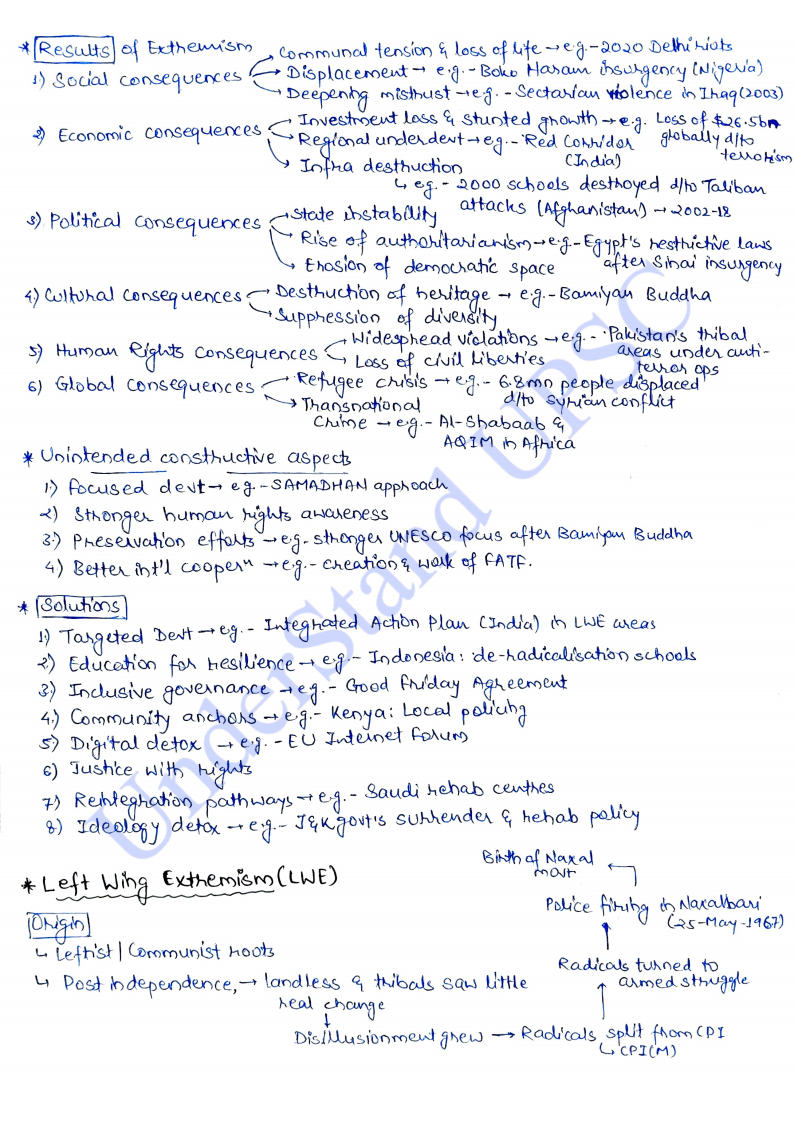 * Results of Extremism
1) Social consequences → Communal tension & loss of life → e.g.- 2020 Delhi riots
→ Displacement → e.g.- Boko Haram insurgency (Nigeria)
→ Deepening mistrust → e.g.- Sectarian violence in Iraq (2003)
2) Economic consequences → Investment loss & stunted growth → e.g. Loss of $26.5bn globally d/to terrorism
→ Regional underdevt → e.g.- Red Corridor (India)
→ Infra destruction
↳ eg.- 2000 schools destroyed d/to Taliban attacks (Afghanistan) → 2002-18
3) Political consequences → State instability
→ Rise of authoritarianism → e.g.- Egypt's restrictive laws after Sinai insurgency
→ Erosion of democratic space
4) Cultural consequences → Destruction of heritage → e.g.- Bamiyan Buddha
→ Suppression of diversity
5) Human Rights consequences → Widespread violations → e.g.- Pakistan's tribal areas under anti-terror ops
→ Loss of civil liberties
6) Global consequences → Refugee crisis → e.g.- 6.8mn people displaced d/to Syrian conflict
→ Transnational Crime → e.g.- Al-Shabaab & AQIM in Africa
* Unintended constructive aspects
1) Focused devt → eg.- SAMADHAN approach
2) Stronger human rights awareness
3.) Preservation efforts → e.g- stronger UNESCO focus after Bamiyan Buddha
4) Better int'l cooperⁿ → e.g.- creation & work of FATF.
* Solutions
1) Targeted Devt → e.g.- Integrated Action Plan (India) in LWE areas
2) Education for resilience → e.g.- Indonesia: de-radicalisation schools
3) Inclusive governance → e.g.- Good Friday Agreement
4.) Community anchors → e.g.- Kenya: Local policing
5) Digital detox → e.g.- EU Internet forum
6) Justice with rights
7) Reintegration pathways → e.g.- Saudi rehab centres
8) Ideology detox → e.g.- J&K govt's surrender & rehab policy
* Left Wing Extremism (LWE)
Origin
↳ Leftist | Communist roots
↳ Post independence, → landless & tribals saw little real change
↓
Disillusionment grew → Radicals split from CPI
↳ CPI(M)
↑
Radicals turned to armed struggle
↑
Police firing in Naxalbari (25-May-1967)
Birth of Naxal movt
UnderStand UPSC